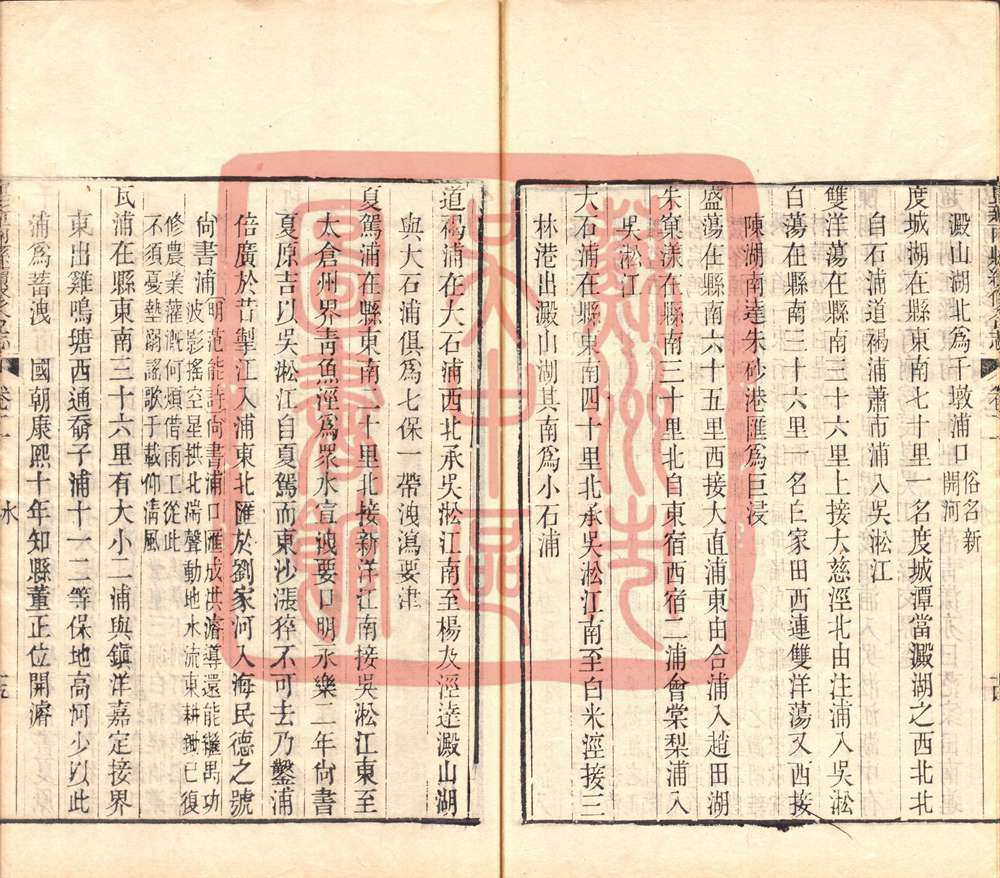 澱山湖北爲千墩浦口俗名新開河
度城湖在縣東南七十里一名度城潭當澱湖之西北北
自石浦道褐浦蕭市浦入吳淞江
雙洋蕩在縣南三十六里上接大慈涇北由注浦入吳淞
白蕩在縣南三十六里一名白家田西連雙洋蕩又西接
陳湖南達朱砂港匯爲巨浸
盛蕩在縣南六十五里西接大直浦東由合浦入趙田湖
朱窠漾在縣南三十里北自東宿西宿二浦會棠梨浦入
吳淞江
大石浦在縣東南四十里北承吳淞江南至白米涇接三
林港出澱山湖其南爲小石浦
道褐浦在大石浦西北承吳淞江南至楊及涇達澱山湖
與大石浦俱爲七保一帶洩瀉要津
夏駕浦在縣東南二十里北接新洋江南接吳淞江東至
太倉州界靑魚涇爲眾水宣洩要口明永樂二年尙書
夏原吉以吳淞江自夏駕而東沙漲猝不可去乃鑿浦
倍廣於昔掣江入浦東北匯於劉家河入海民德之號
尙書浦明范能詩尙書浦口匯成洪濬導還能繼禹功
波影搖空星拱北湍聲動地水流東耕鋤已復
修農業灌漑何煩借雨工從此
不須憂墊溺謠歌千載仰淸風
瓦浦在縣東南三十六里有大小二浦與鎭洋嘉定接界
東出雞鳴塘西通奣子浦十一二等保地高河少以此
浦爲蓄洩
國朝康熙十年知縣董正位開濬
水